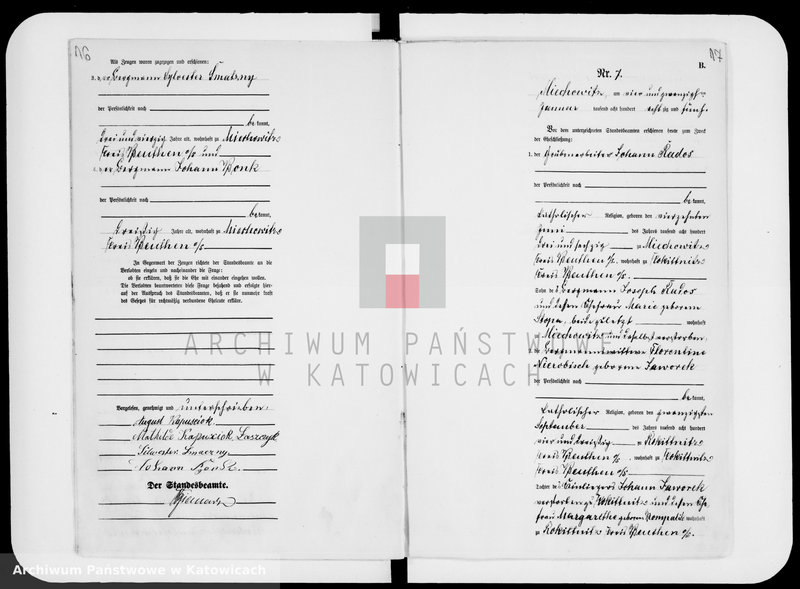 16
Als Zeugen waren zugezogen und erschienen:
3. der Bergmann Sylvester Smatsny
der Persönlichkeit nach
bekannt,
drei und vierzig Jahre alt, wohnhaft zu Miechowitz
Kreis Beuthen o/s und
4. der Bergmann Johann Bonk
der Persönlichkeit nach
bekannt,
dreißig Jahre alt, wohnhaft zu Miechowitz
Kreis Beuthen o/s
In Gegenwart der Zeugen richtete der Standesbeamte an die
Verlobten einzeln und nacheinander die Frage:
ob sie erklären, daß sie die Ehe mit einander eingehen wollen.
Die Verlobten beantworteten diese Frage bejahend und erfolgte hier-
auf der Ausspruch des Standesbeamten, daß er sie nunmehr kraft
des Gesetzes für rechtmäßig verbundene Eheleute erkläre.
Vorgelesen, genehmigt und unterschrieben
August Kapusciok
Mathilde Kapuziok Laszczyk
Silwester
Johann
Der Standesbeamte.
17
B.
Nr. 7.
Miechowitz, am vier und zwanzigsten
Januar tausend acht hundert achtzig und fünf.
Vor dem unterzeichneten Standesbeamten erschienen heute zum Zweck
der Eheschließung:
1. der Grubenarbeiter Johann Kudos
der Persönlichkeit nach
bekannt,
katholischer Religion, geboren den vierzehnten
Juni des Jahres tausend acht hundert
drei und sechzig zu Miechowitz
Kreis Beuthen o/s, wohnhaft zu Rokittnitz
Kreis Beuthen o/s.
Sohn des Bergmann Joseph Kudos
und dessen Ehefrau Marie geborene
Stopa, beide zuletzt wohnhaft
zu Miechowitz und daselbst verstorben.
2. die Bergmannswittwe Florentine
Nierobisch geborene Jaworek
der Persönlichkeit nach
bekannt,
katholischer Religion, geboren den zwanzigsten
September des Jahres tausend acht hundert
vier und dreissig zu Rokittnitz
Kreis Beuthen o/s, wohnhaft zu Rokittnitz
Kreis Beuthen o/s
Tochter des Einliegers Johann Jaworek
verstorben zu Rokittnitz und dessen Ehe
frau Margarethe geborene wohnhaft
zu Rokittnitz Kreis Beuthen o/s.
ARCHIWUM PAŃSTWOWE
W KATOWICACH
Archiwum Państwowe w Katowicach